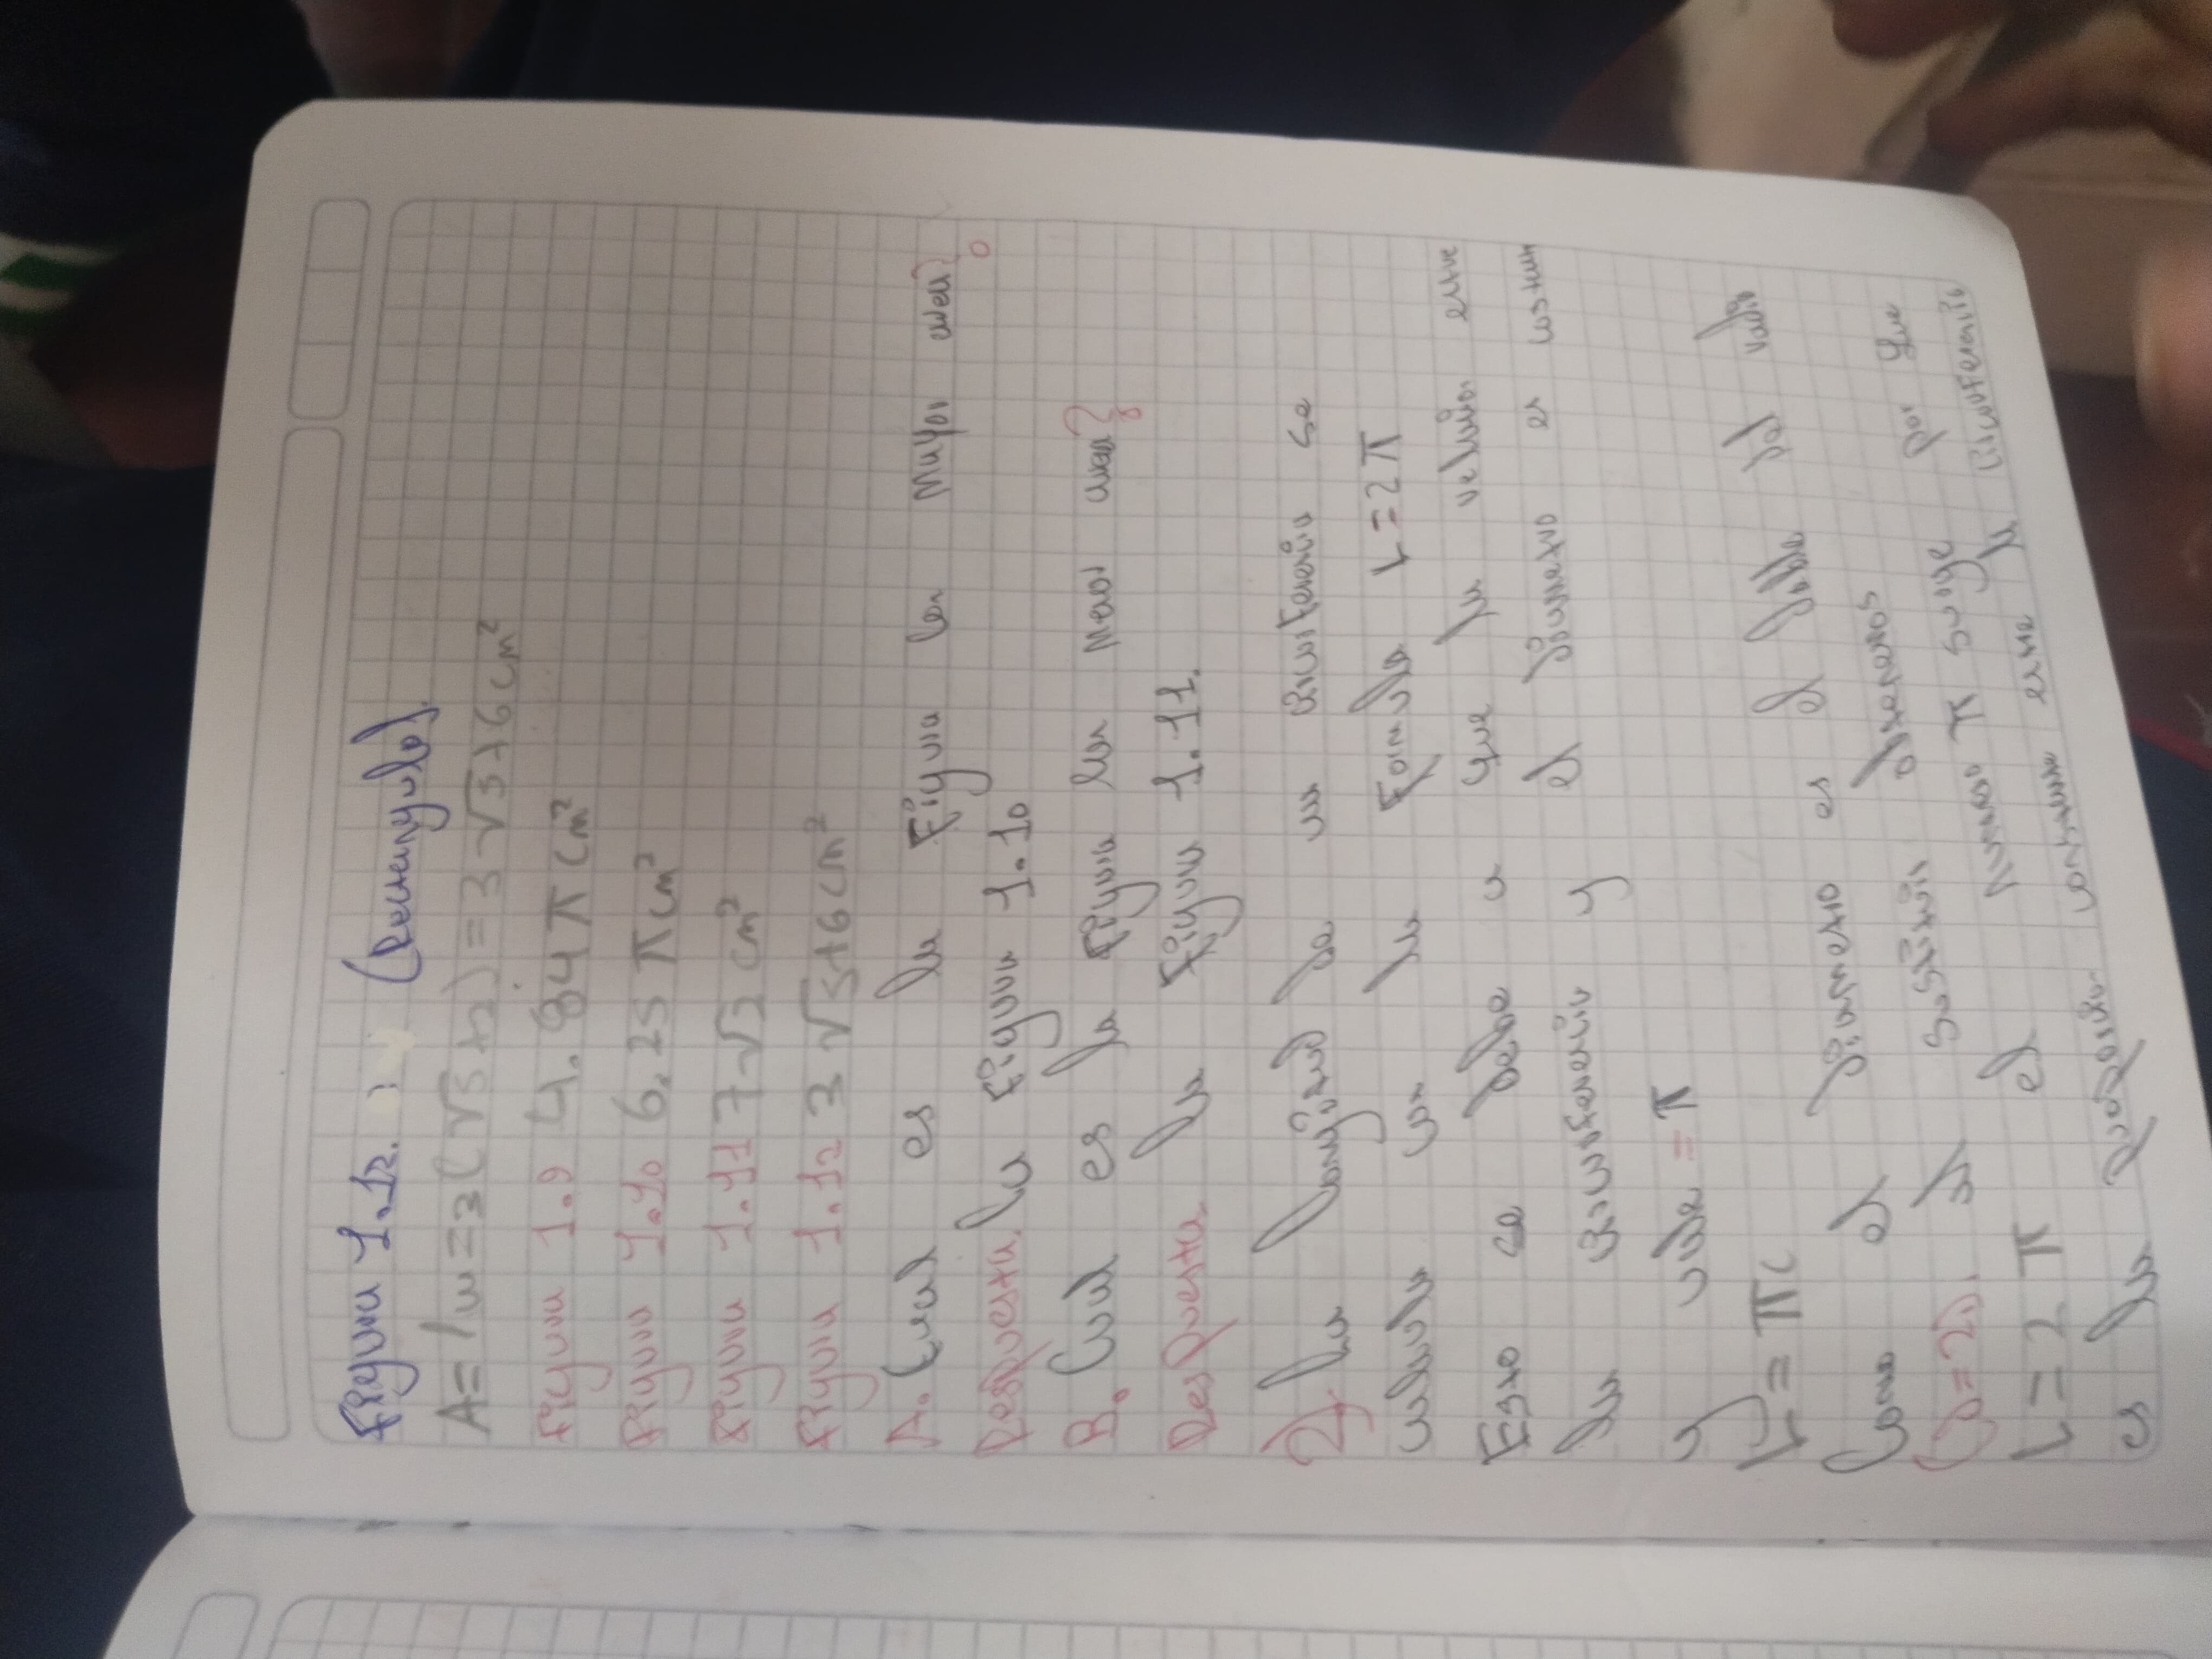 Figura 1.12. (Rectangulo).
A= lw = 3(√5+2) = 3√5+6cm²
Figura 1.9 4.84π cm²
Figura 1.10 6.25 π cm²
Figura 1.11 7√2 cm²
Figura 1.12 3√5+6cm²
A. Cual es la Figura con mayor area?
Respuesta. la Figura 1.10
B. Cual es la Figura con menor area?
Respuesta la Figura 1.11.
2) La longitud de una circunferencia se
calcula con la Formula L=2π
Esto se debe a que la relacion entre
la circunferencia y el diametro es
y vale = π
L=
Como el diametro es el doble del radio
al sustituir obtenemos
L=2π el numero π surge por que
es la proporcion constante entre la circunferencia